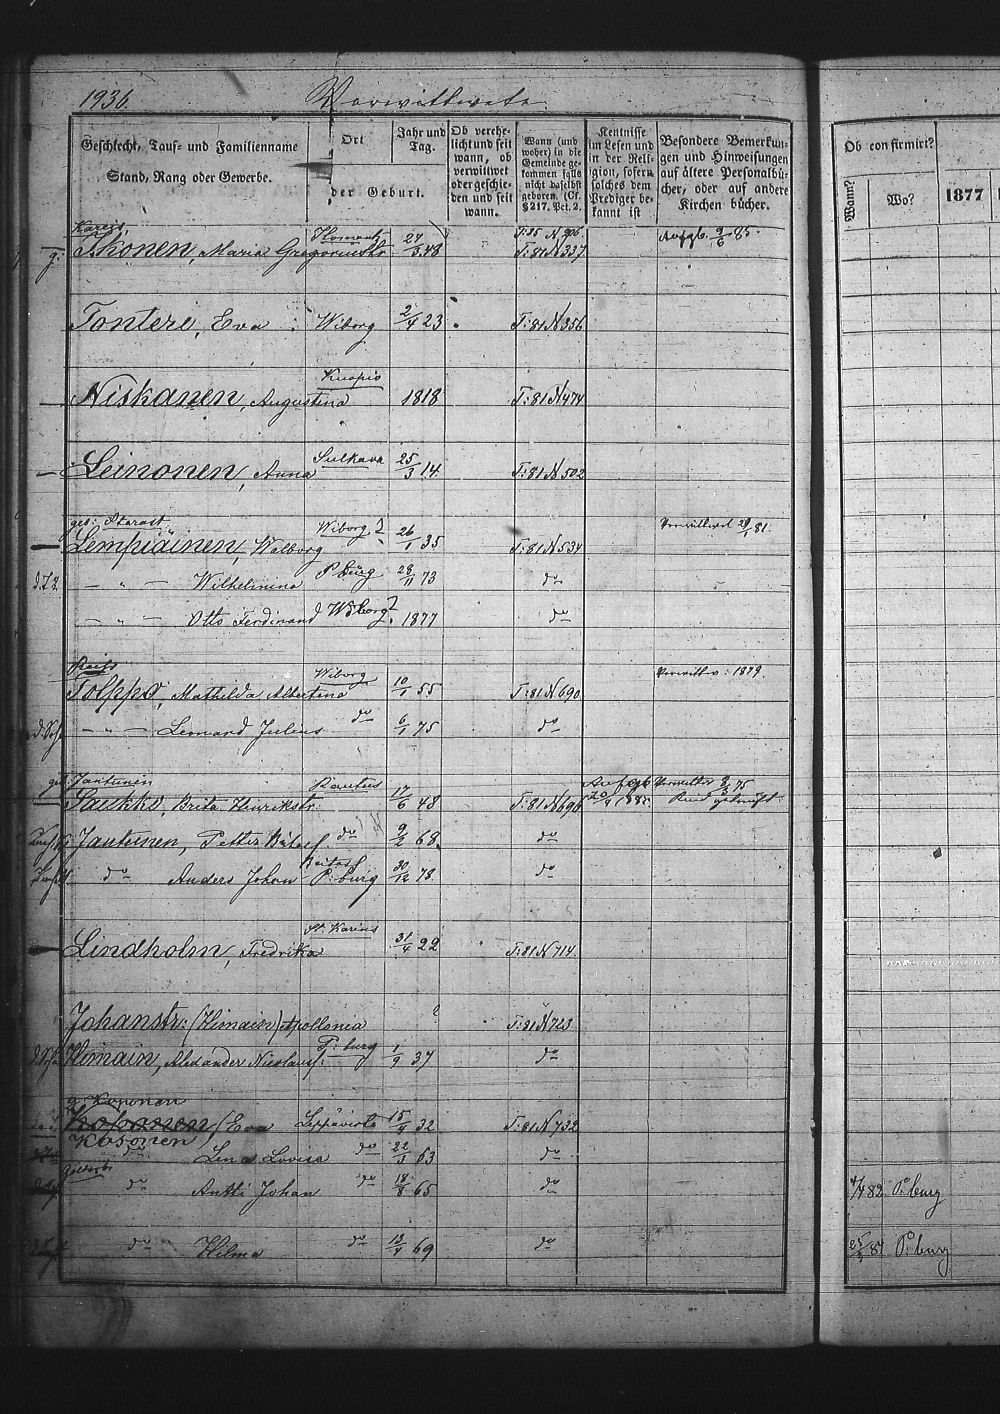 1936.
Verwittwete
Geschlecht, Tauf- und Familienname
Stand, Rang oder Gewerbe.
Ort
der Geburt.
Jahr und Tag.
Ob verehelicht und seit wann, ob verwittwet oder geschieden und seit wann.
Wann (und woher) in die Gemeinde gekommen falls nicht daselbst geboren. (Cf. § 217. Pct. 2.
Kentnisse im Lesen und in der Religion, sofern solches dem Prediger bekannt ist
Besondere Bemerkungen und Hinweisungen auf ältere Personalbücher, oder auf andere Kirchen bücher.
Ob confirmirt?
Wann?
Wo?
1877
T:85 N 906
g: Ikonen, Maria Gregorinstr 48 T:81 N 337 9/6 85.
Tontere, Eva Wiborg 2/4 23 T:81 N 356
Niskanen, Augustina Kuopio 1818 T:81 N 474
Leinonen, Anna Sulkava 25/3 14. T:81 N 502
geb: Starast
Lempiäinen, Walborg Wiborg? 26/1 35 T:81 N 534 Verwittwet 81.
— " — Wilhelmina P burg 28/11 73 do
— " — Otto Ferdinand Wiborg? 1877 do
Tolppa, Mathilda Albertina Wiborg 10/1 55 T:81 N 690 Verwittw: 1879
— " — Leonard Julius do 6/1 75 do
geb Jantunen
Saukko, Brita Henrikstr: Rautus 17/6 48 T:81 N 696
Jantunen, Petter do 9/2 68. do
do Anders Johan P: burg 30/12 78. do
Lindholm, Fredrika St. Karins 31/4 22 T:81 N 714.
Johanstr: (Himain) Apollonia ? T:81 N 723
Himain, Alexander Nicolaus P: burg 1/9 37 do
g. Koponen
Eva Leppävirta 15/9 32 T:81 N 732
Kosonen
do Lina Lovisa do 22/3 63 do
do Antti Johan do 18/8 65 do 4/4 82 P: burg
do Hilma do 13/4 69 do 84 P: burg